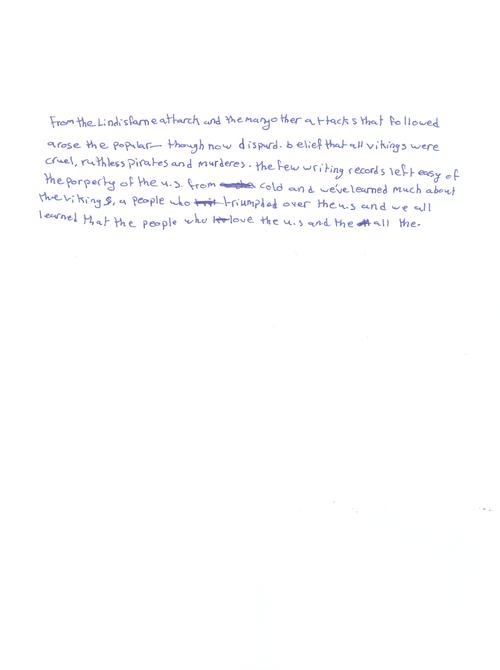 From the Lindisfarne attarck and the many other attacks that followed
arose the popular— though now dispurd. belief that all vikings were
cruel, ruthless pirates and murderes. the few writing records left easy of
the porperty of the u.s. from cold and we've learned much about
the vikings, a people who triumpded over the u.s and we all
learned that the people who love the u.s and the all the.